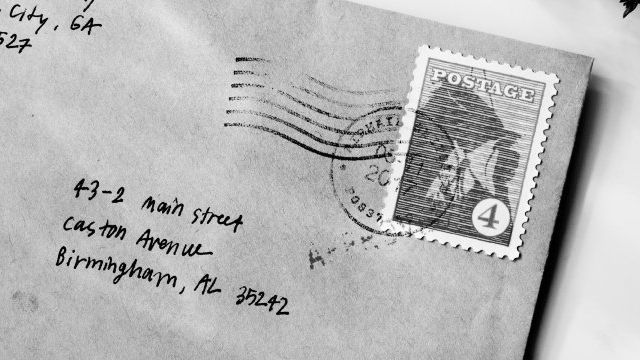 City, GA
527
POSTAGE
4
43-2 main street
Caston Avenue
Birmingham, AL 35242